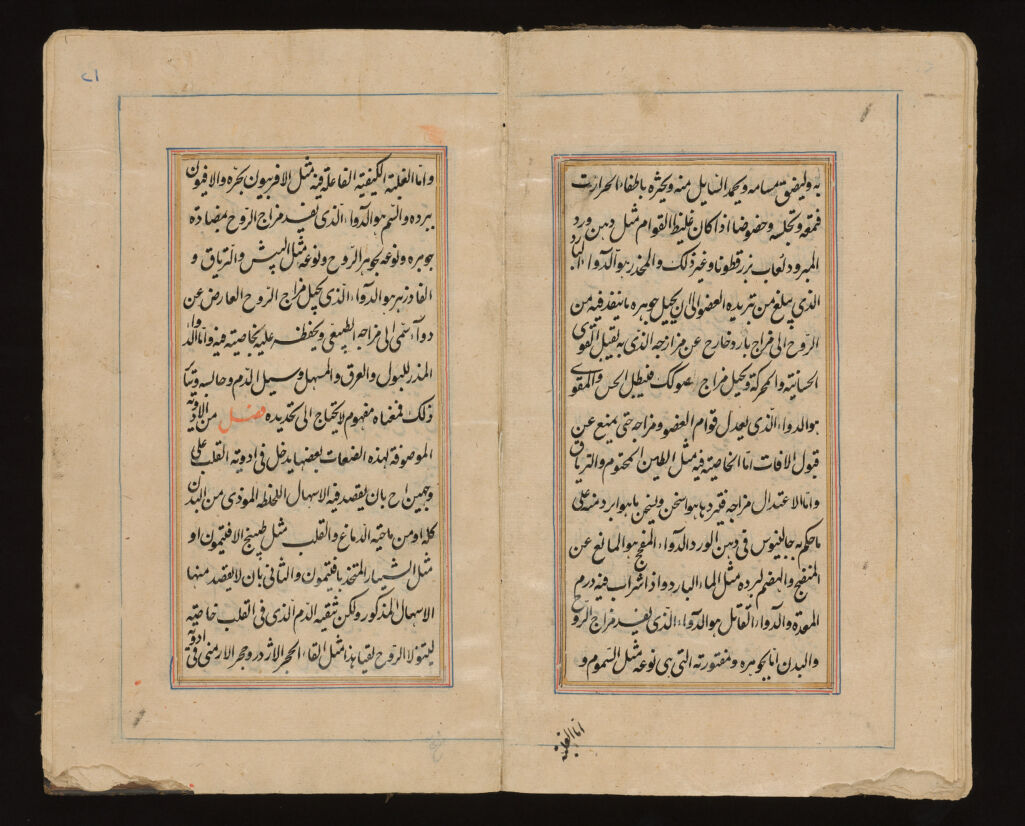 به وليضيق مسامه ويجمد السايل منه ويخثره باطفاء الحرارت
فيمنعه وتجلسه وخصوصا اذا كان غليظ القوام مثل دهن ورد
المبرود لعاب بزر قطونا وغير ذلك والمخدر هو الدواء البارد
الذى يبلغ من تبريده العضو الى ان يحيل جوهره ما ينفذ فيه من
الروح الى مزاج بارد خارج عن مزاجه الذى به يقبل القوى
الحسانيته والمحركة ويحيل مزاج العضو كك فيبطل الحس والمقوى
هو الدواء الذى يعدل قوام العضو ومزاجه حتى يمنع عن
قبول الافات اما لخاصيته فيه مثل الطين المختوم والترياق
واما لاعتدال مزاجه فيبرد ما هو اسخن ويسخن ما هو ابرد منه على
ما حكم به جالينوس فى دهن الورد الدواء المفجج هو المانع عن
المنفجج والهضم لبرده مثل الماء البارد واذا شراب فيه درم
المعدة والدواء القاتل هو الدواء الذى يفسد مزاج الروح
والبدن اما بجوهره ومقتورته التى هى نوعه مثل السموم و
اما الغلبته
٢١
واما الغلبته الكيفيته الفاعلة فيه مثل الافربيون بحره والافيون
ببرده والسم هو الدواء الذى يفسد مزاج الروح بمضادة
جوهره ونوعه بجوهر الروح ونوعه مثل البيش والترياق و
الفادزهر هو الدواء الذى يحيل مزاج الروح العارض عن
دواء سمى الى مزاجه الطبيعى ويحفظه عليه بخاصيته فيه واما الدوا
المدر للبول والعرق والمسهل ومسيل الدم وحابسه وغير
ذلك فمعناه مفهوم لا يحتاج الى تحديده فصل من الادوية
الموصوفة بهذه الصنعات بعضها يدخل فى ادوية القلب على
وجهين احدهما بان يقصد فيه الاسهال للخلط الموذى من البدن
كله او من ناحيته الدماغ والقلب مثل طبيخ الافتيمون او
مثل الشيار المتخذ بافتيمون والثانى بان لا يقصد منها
الاسهال المذكور ولكن تنقيه الدم الذى فى القلب خاصته
ليتولا الروح نقيا هذا مثل القاء الحجر الازدر وحجر الارمنى فى ادوية